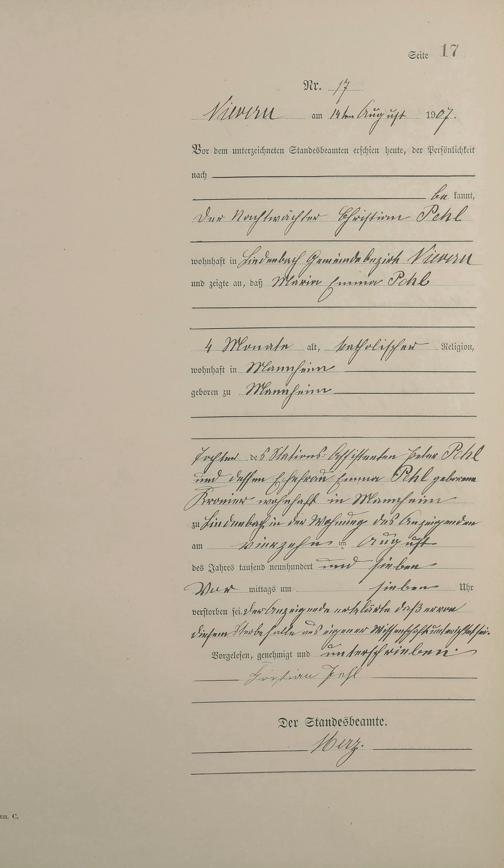 Seite 17
Nr. 17
Nievern am 14ten August 1907.
Vor dem unterzeichneten Standesbeamten erschien heute, der Persönlichkeit
nach
be kannt,
der Nachtwächter Christian Pehl
wohnhaft in Lindenbach Gemeindebezirk Nievern
und zeigte an, daß Maria Emma Pehl
4 Monate alt, katholischer Religion,
wohnhaft in Mannheim
geboren zu Mannheim
Tochter des Stations-Assistenten Peter Pehl
und dessen Ehefrau Emma Pehl geborene
wohnhaft in Mannheim
zu Lindenbach in der Wohnung des Anzeigenden
am vierzehn ten August
des Jahres tausend neunhundert und sieben
Vor mittags um sieben Uhr
verstorben sei. Der Anzeigende erklärte daß er von
diesem Sterbefalle aus eigener Wissenschaft unterrichtet sei.
Vorgelesen, genehmigt und unterschrieben.
Pehl
Der Standesbeamte.
Merz.